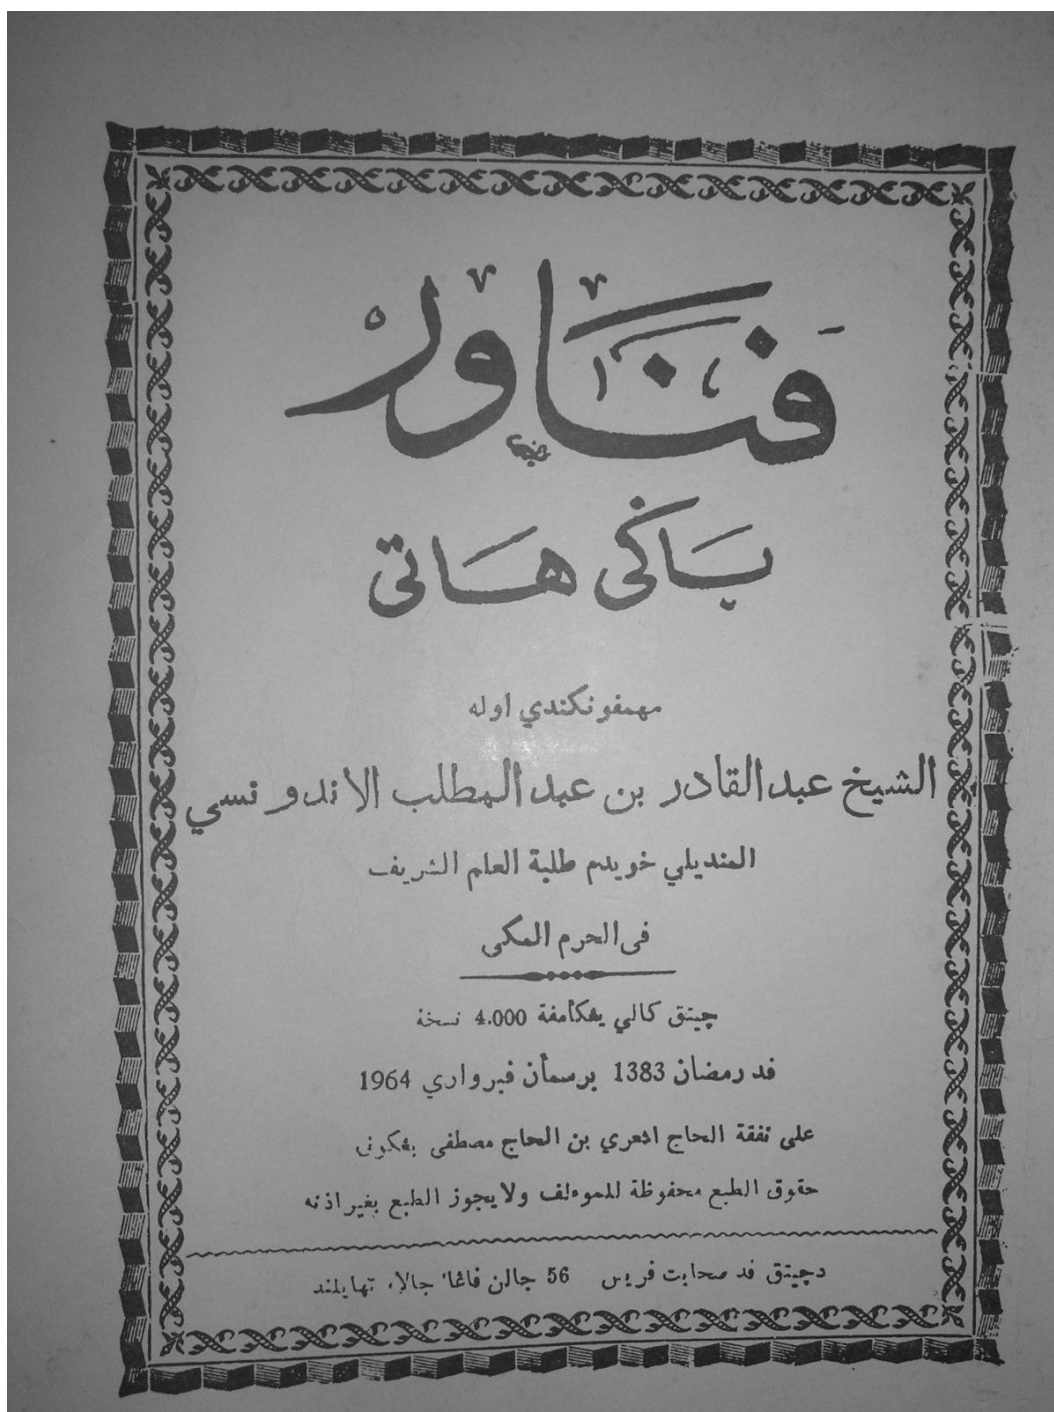 فناور
باكى هاتى
مهمفونكندي اوله
الشيخ عبدالقادر بن عبد المطلب الاندونسي
المنديلي خويدم طلبة العلم الشريف
فى الحرم المكى
چيتق كالي يڠكأمفة 4.000 نسخة
فد رمضان 1383 برسمأن فبرواري 1964
على نفقة الحاج اشعري بن الحاج مصطفى بڠكوني
حقوق الطبع محفوظة للموءلف ولا يجوز الطبع بغير اذنه
دچيتق فد صحابت فريس 56 جالن فاتنا جالا، تهايلند